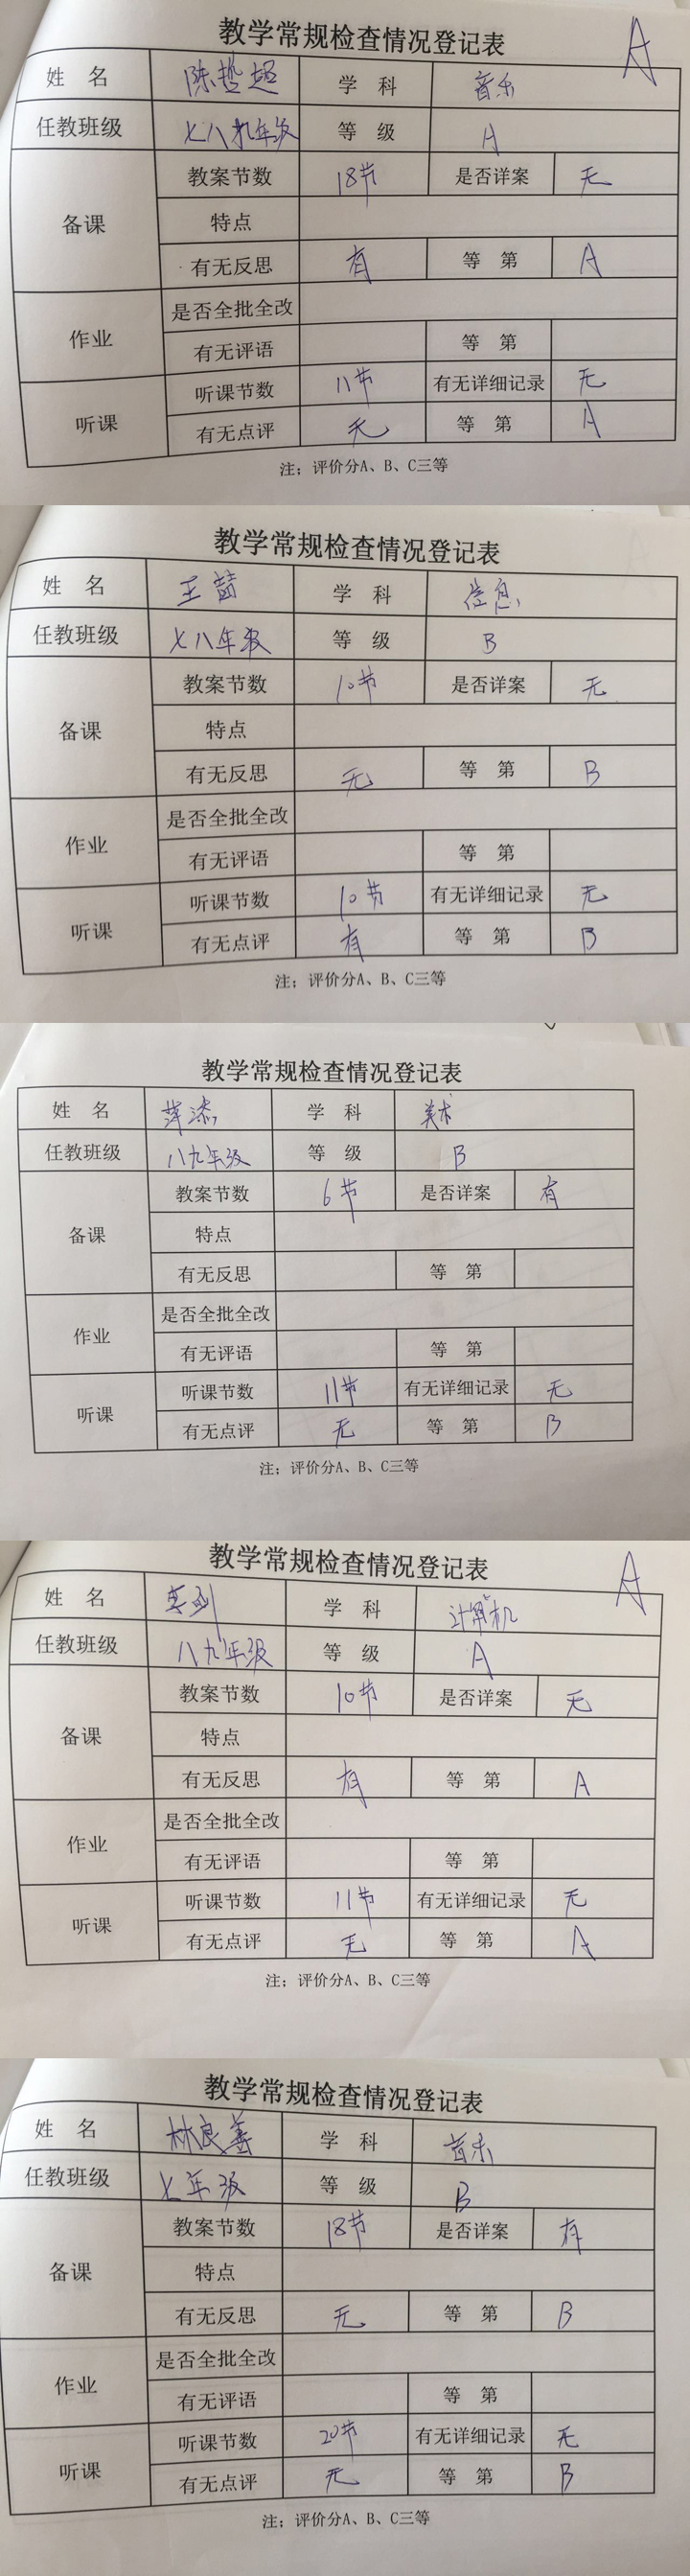 教学常规检查情况登记表 A
姓 名 陈哲超 学 科 音乐
任教班级 七八九年级 等 级 A
备课 教案节数 18节 是否详案 无
特点
有无反思 有 等 第 A
作业 是否全批全改
有无评语 等 第
听课 听课节数 11节 有无详细记录 无
有无点评 无 等 第 A
注：评价分A、B、C三等
教学常规检查情况登记表
姓 名 王 学 科 信息
任教班级 七八年级 等 级 B
备课 教案节数 10节 是否详案 无
特点
有无反思 无 等 第 B
作业 是否全批全改
有无评语 等 第
听课 听课节数 10节 有无详细记录 无
有无点评 有 等 第 B
注：评价分A、B、C三等
教学常规检查情况登记表
姓 名 学 科 美术
任教班级 八九年级 等 级 B
备课 教案节数 6节 是否详案 有
特点
有无反思 等 第
作业 是否全批全改
有无评语 等 第
听课 听课节数 11节 有无详细记录 无
有无点评 无 等 第 B
注：评价分A、B、C三等
教学常规检查情况登记表 A
姓 名 学 科 计算机
任教班级 八九年级 等 级 A
备课 教案节数 10节 是否详案 无
特点
有无反思 有 等 第 A
作业 是否全批全改
有无评语 等 第
听课 听课节数 11节 有无详细记录 无
有无点评 无 等 第 A
注：评价分A、B、C三等
教学常规检查情况登记表
姓 名 林良善 学 科 音乐
任教班级 七年级 等 级 B
备课 教案节数 18节 是否详案 有
特点
有无反思 无 等 第 B
作业 是否全批全改
有无评语 等 第
听课 听课节数 20节 有无详细记录 无
有无点评 无 等 第 B
注：评价分A、B、C三等